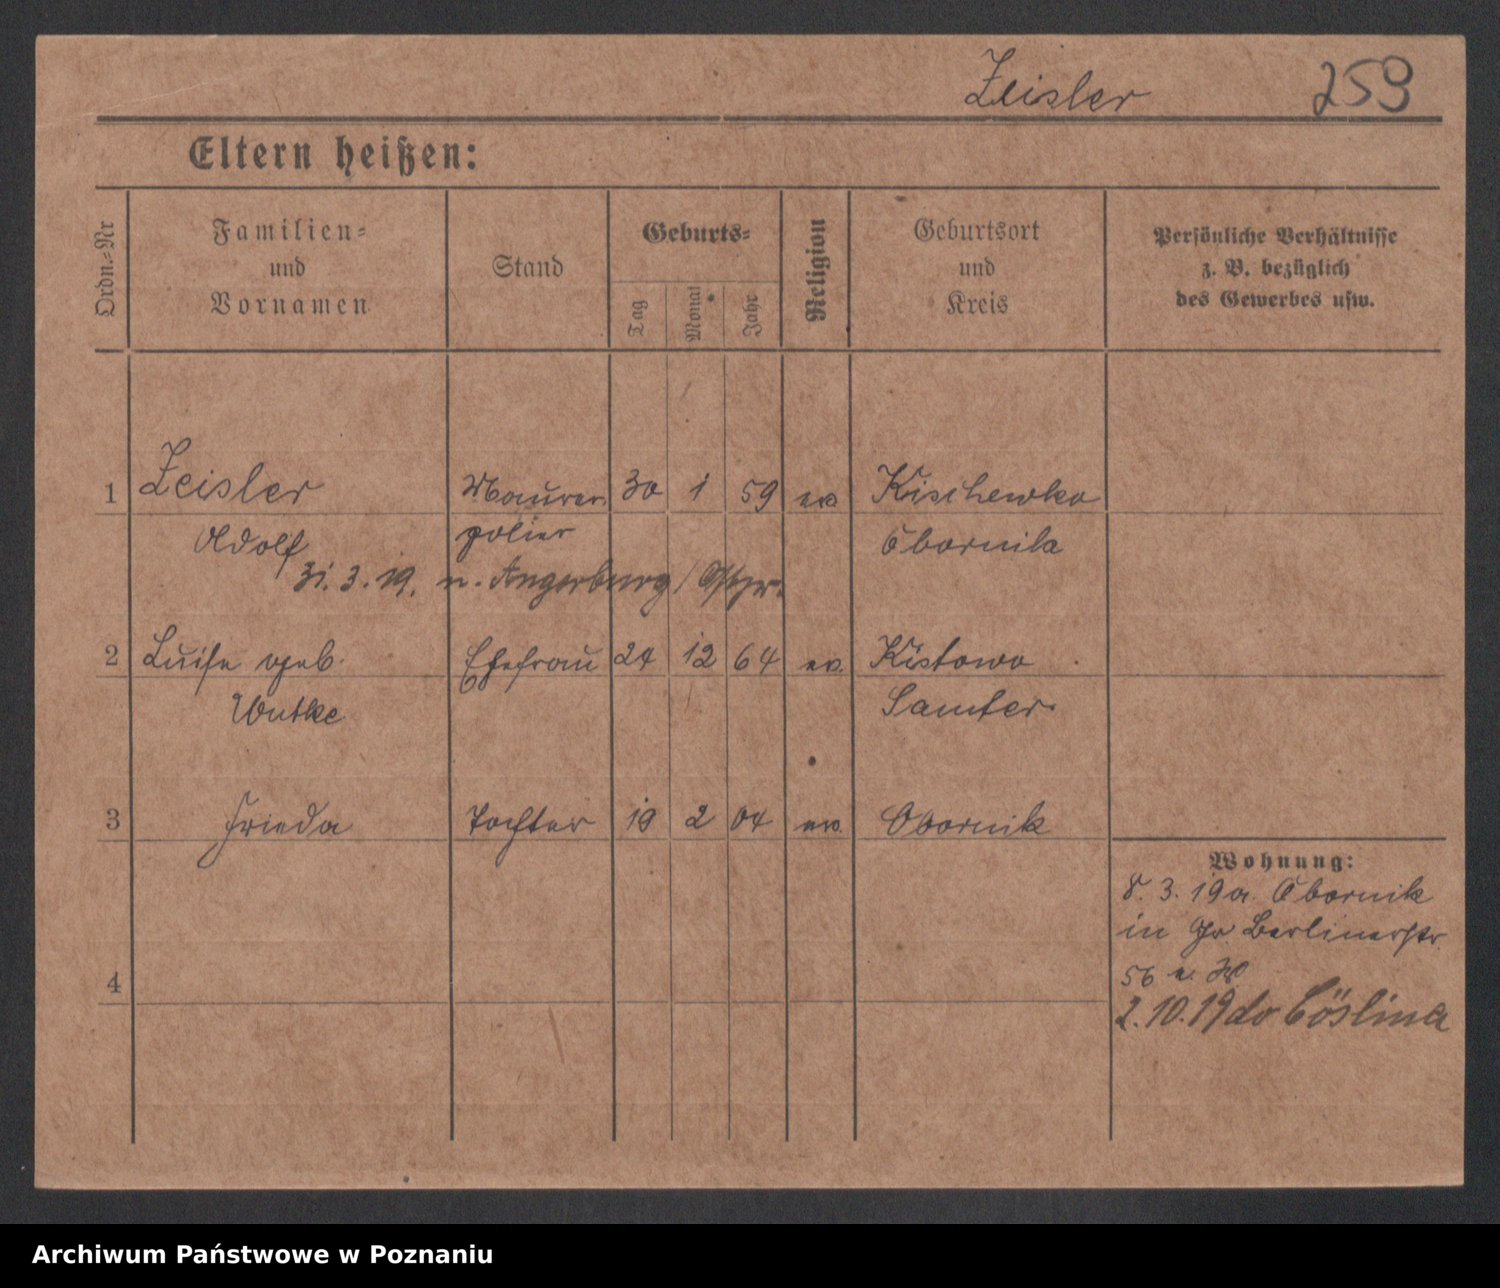 Zeisler 259
Eltern heißen:
Ordn.-Nr
Familien-
und
Vornamen
Stand
Geburts-
Tag
Monat
Jahr
Religion
Geburtsort
und
Kreis
Persönliche Verhältnisse
z. B. bezüglich
des Gewerbes usw.
1 Zeisler Maurer 30 1 59 ev. Kischewko
Adolf polier Obornik
31. 3. 19. n. Angerburg / Ostpr.
2 Luise geb. Ehefrau 24 12 64 ev. Kistowo
Wutke Samter
3 Frieda Tochter 19 2 04 ev. Obornik
Wohnung:
8. 3. 19 a. Obornik
in Gr. Berlinerstr.
56
4
2. 10. 19 do Cöslina
Archiwum Państwowe w Poznaniu